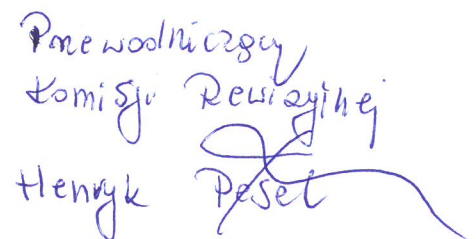 Przewodniczący
Komisji Rewizyjnej
Henryk Peset